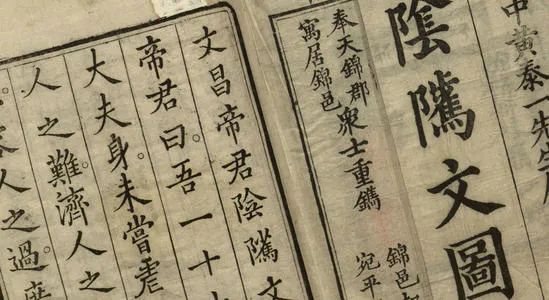 中黃泰一先生
陰隲文圖
奉天錦郡衆士重鐫
寓居錦邑
錦邑
宛平
文昌帝君陰隲文
帝君曰。吾一十
大夫身。未嘗虐
人之難。濟人之
容人之過。廣